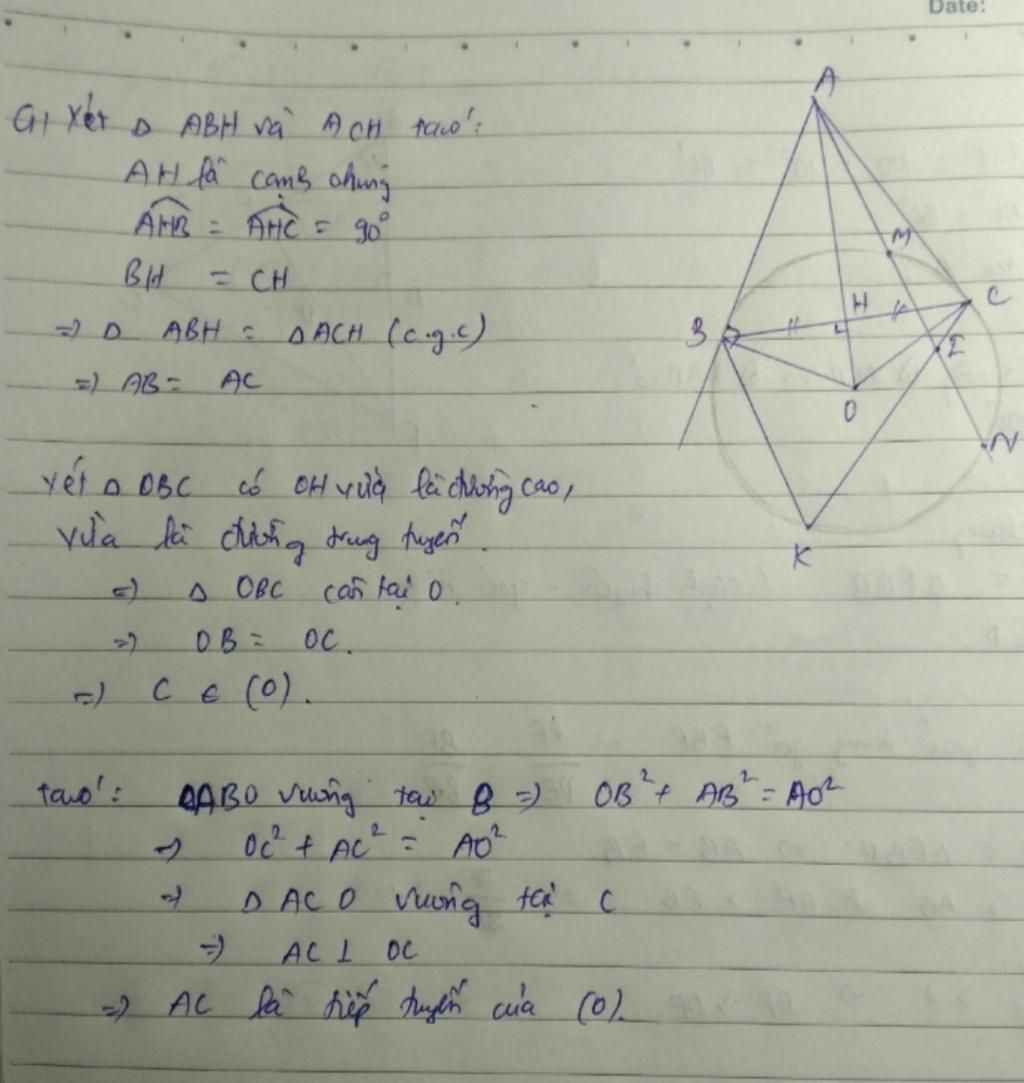 Date:
a, Xét Δ ABH và ACH ta có:
AH là cạnh chung
AHB = AHC = 90°
BH = CH
=> Δ ABH = ΔACH (c.g.c)
=> AB = AC
Xét Δ OBC có OH vừa là đường cao,
vừa là đường trung tuyến.
=> Δ OBC cân tại O.
=> OB = OC.
=> C ∈ (O).
ta có: ΔABO vuông tại B => OB² + AB² = AO²
=> OC² + AC² = AO²
=> Δ ACO vuông tại C
=> AC ⊥ OC
=> AC là tiếp tuyến của (O).
A
M
H
C
B
I
O
N
K